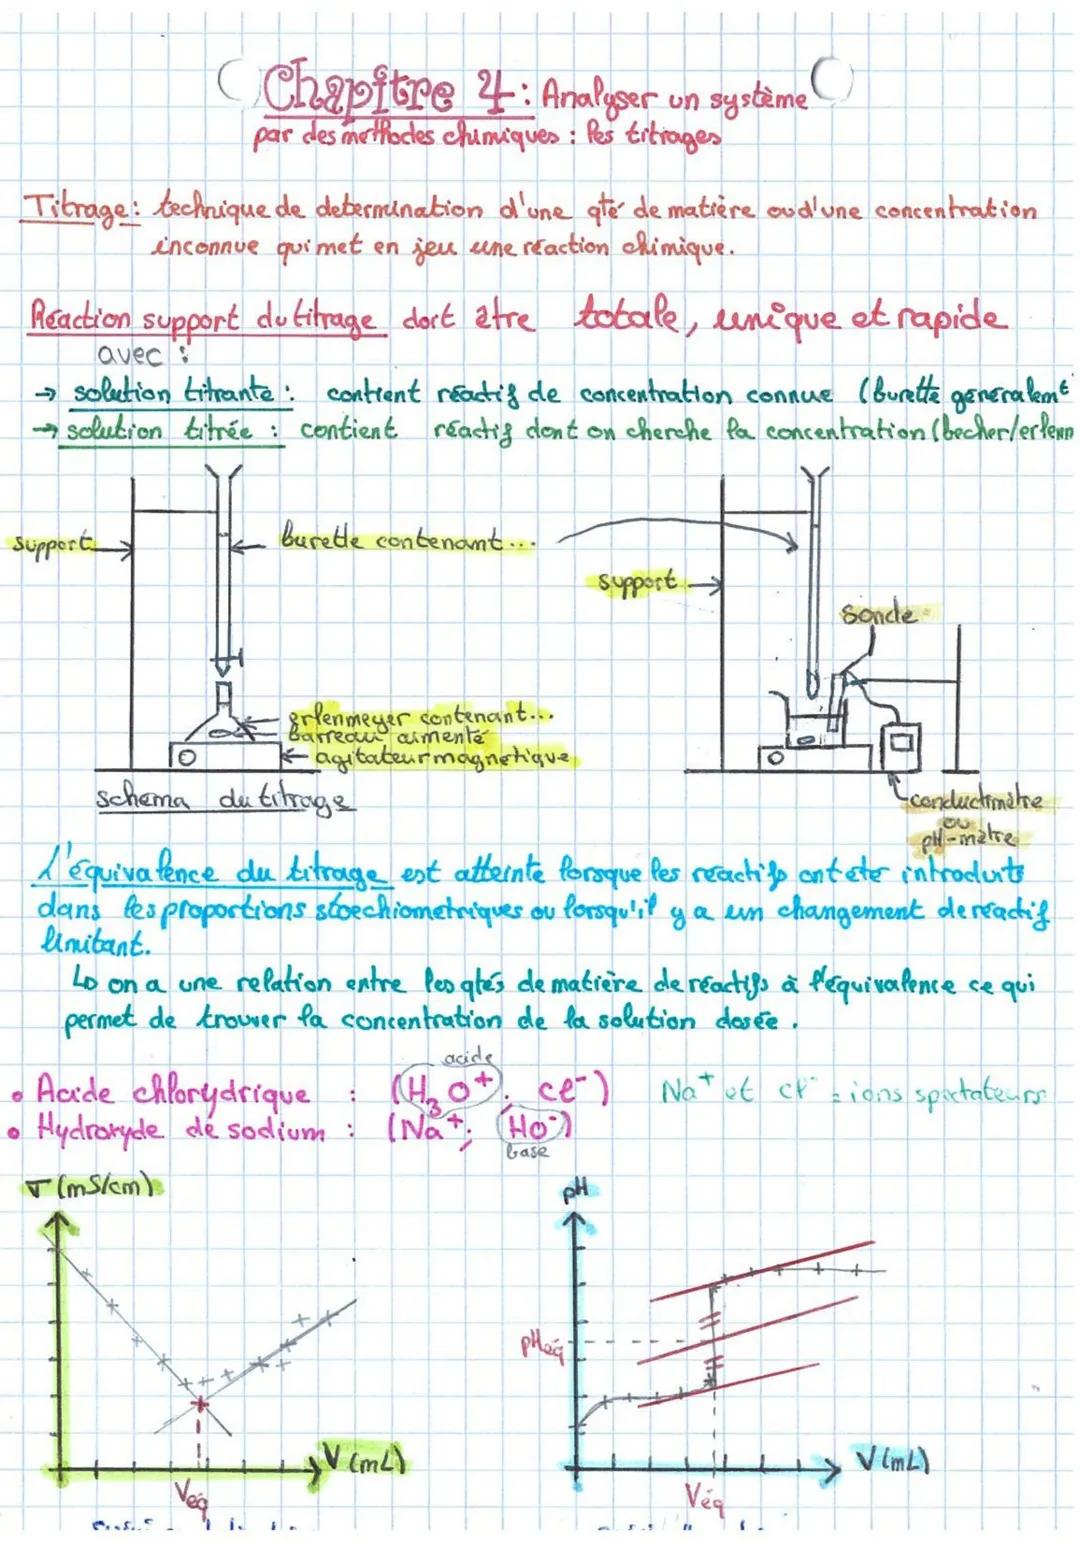 Chapitre 4 : Analyser un système
par des methodes chimiques : les titrages
Titrage : technique de determination d'une qté de matière ou d'une concentration
inconnue qui met en jeu une réaction chimique.
Réaction support du titrage doit être totale, unique et rapide
avec :
→ solution titrante : contient réactif de concentration connue (burette generalemt
→ solution titrée : contient réactif dont on cherche la concentration (becher/erlenm
support
burette contenant...
support
sonde
erlenmeyer contenant...
barreau aimenté
agitateur magnetique
schema du titrage
conductimètre
ou
pH-mètre
L'équivalence du titrage est atteinte lorsque les reactifs ont été introduits
dans les proportions stoechiometriques ou lorsqu'il y a un changement de réactif
limitant.
↳ on a une relation entre les qtés de matière de réactifs à l'équivalence ce qui
permet de trouver la concentration de la solution dosée.
acide
• Acide chlorydrique : (H₃O⁺; Cl⁻) Na⁺ et Cl⁻ = ions spectateurs
• Hydroxyde de sodium : (Na⁺; HO⁻)
base
σ (mS/cm)
V (mL)
Véq
pH
pHéq
V (mL)
Véq